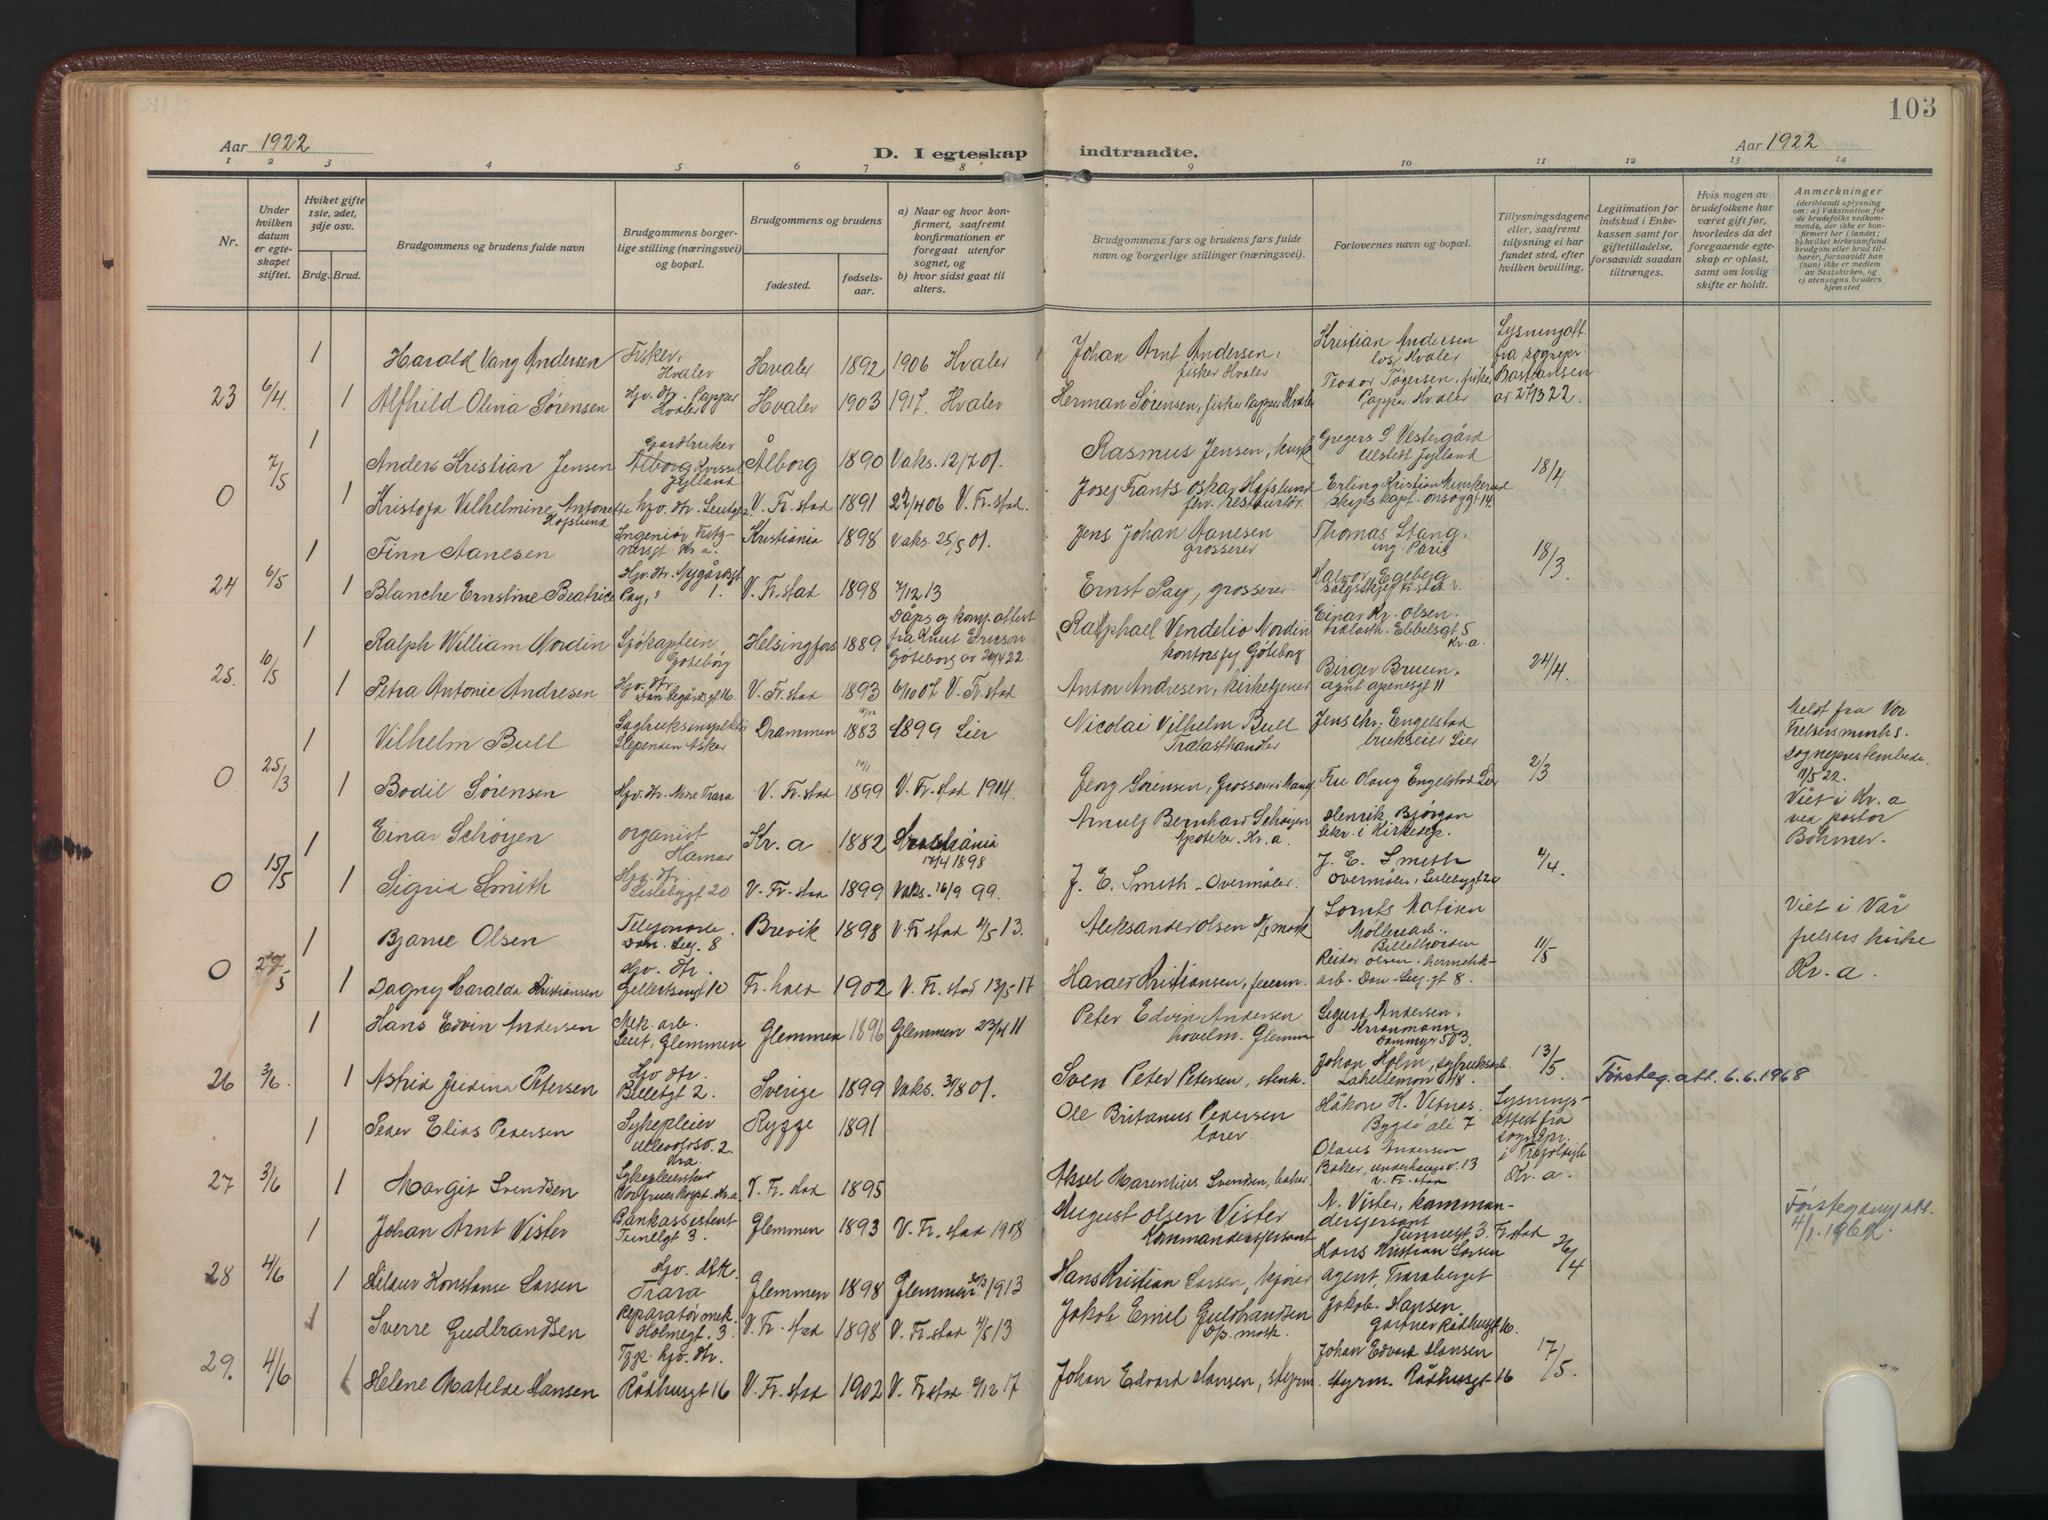 103
Aar 1922
D. I egteskap indtraadte.
Aar 1922
1 2 3 4 5 6 7 8 9 10 11 12 13 14
Nr.
Under hvilken datum er egteskapet stiftet.
Hviket gifte 1ste, 2det, 3dje osv.
Brdg. Brud.
Brudgommens og brudens fulde navn
Brudgommens borgerlige stilling (næringsvei) og bopæl.
Brudgommens og brudens
fødested.
fødselsaar.
a) Naar og hvor konfirmert, saafremt konfirmationen er foregaat utenfor sognet, og
b) hvor sidst gaat til alters.
Brudgommens fars og brudens fars fulde navn og borgerlige stillinger (næringsvei).
Forlovernes navn og bopæl.
Tillysningsdagene eller, saafremt tillysning ei har fundet sted, efter hvilken bevilling.
Legitimation for indskud i Enkekassen samt for giftetilladelse, forsaavidt saadan tiltrænges.
Hvis nogen av brudefolkene har været gift før, hvorledes da det foregaaende egteskap er opløst, samt om lovlig skifte er holdt.
Anmerkninger (deriblandt oplysning om: a) Vaksination for de brudefolks vedkommende, der ikke er konfirmert her i landet; b) hvilket kirkesamfund brudgom eller brud tilhører, forsaavidt han (hun) ikke er medlem av Statskirken, og c) utensogns bruders hjemsted
1 Harald Vang Andersen Fisker, Hvaler Hvaler 1892 1906 Hvaler Johan Arnt Andersen, fisker Hvaler Kristian Andersen los, Hvaler Lysningatt fra sognepr Bastiansen av 27/3 22.
23 6/4. 1 Alfhild Olivia Sørensen Hjv. dtr. Papper Hvaler Hvaler 1903 1917. Hvaler Herman Sørensen, fisker Papper Hvaler Teodor Tøgersen, fisker Papper Hvaler
1 Anders Kristian Jensen Gardbruker Ålborg Jylland Ålborg 1890 Vaks. 12/7 01. Rasmus Jensen, husm Gregers S Vestergård Ulstedt Jylland 18/4
0 7/5 1 Kristofa Vilhelmine Antonette Hafslund hjv. dtr. V. Fr.stad 1891 22/4 06 V. Fr.stad. Josef Frants Oskar Hafslund fhv. restauratør Erling Kristian skipskapt.
1 Finn Aanesen Ingeniør Kr.a. Kristiania 1898 Vaks. 25/5 01. Jens Johan Aanesen grosserer Thomas Stang, ing. Paris 18/3
24 6/5 1 Blanche Ernstine Beatrice Pay, Hjv. dtr. Nygårdsgt 1. V. Fr.stad 1898 7/12 13 Ernst Pay, grosserer Halvor Egeberg
1 Ralph William Nordin Sjökaptein Göteborg Helsingfors 1889 Dåps og konf. attest fra Knut Ericson Göteborg av 20/4 22. Raphael Vendelio Norden kontorsjef Göteborg Einar Kr. Olsen. Ebbelsgt 5 Kr.a. 24/4
25. 10/5 1 Petra Antonie Andresen Hjv. dtr. V. Fr.stad 1893 6/10 07 V. Fr.stad Anton Andresen, kirketjener Birger Bruun, agent Apenesgt 11
1 Vilhelm Bull Sagbruksinspektør Slependen Asker Drammen 1883 1899 Lier Nicolai Vilhelm Bull Trælasthandler Jens Chr. Engelstad brukseier Lier Meldt fra Vor Frelsers minhs. sogneprestembede 11/5 22. Viet i Kr.a ved pastor Bohmer.
0 25/3 1 Bodil Sørensen Hjv. dtr. Nere Trara V. Fr.stad 14/1 1899 V. Fr.stad 1914. Georg Sørensen, Grosserer Fru Olaug Engelstad Lier 2/3
1 Einar Schøyen organist Hamar Kr.a 1882 Kristiania 17/4 1898 Arnulf Bernhard Schøyen Apoteker. Kr.a. Henrik Bjørgan Sekr. i Kirkedep. 4/4.
0 15/5 1 Sigrid Smith Hjv. dtr. Leiebygt 20 V. Fr.stad 1899 Vaks. 16/9 99. J. E. Smith - Overmåler. J. E. Smith overmåler
1 Bjarne Olsen Telefonarb. Dan. Leeg. 8 Brevik 1898 V. Fr.stad 4/5 13. Aleksander Olsen d/s mask Lorents Matisen Møllearb. 11/5 Viet i Vår frelsers kirke Kr.a.
0 27/5 1 Dagny Haralda Kristiansen Hjv. dtr. Gellertsengt 10 Fr.hald 1902 V. Fr.stad 13/5 17 Harald Kristiansen, Reidar Olsen, hermetikarb. Dan. Leeg. gt 8.
1 Hans Edvin Andersen Mek. arb. Leut, Glemmen Glemmen 1896 Glemmen 23/4 11 Peter Edvin Andersen hovelm. Glemmen Sigurd Andersen, Kranmann Dammyr 503.
26 3/6. 1 Astrid Petersen Hjv dtr. Billetgt 2. Sverige 1899 Vaks. 31/8 01. Sven Peter Petersen, stenh. Johan Holm, Lahellemon 13/5 Førsteg. att. 6.6.1968
1 Peder Elias Pedersen Sykepleier Ullevolsv. 2. Kra. Rygge 1891 Ole Britanus Pedersen lærer. Håkon K. Vetnes. Bygdø ale 7 Lysningsattest fra sognepr. i Trefoldigh. Kr.a.
27 3/6 1 Margit Svendsen Sykepleierske V. Fr.stad 1895 Aksel Marentius Svendsen, baker Olaus Andersen Baker, 13 V. Fr.stad
1 Johan Arnt Vister Bankassistent Tunelgt 3. Glemmen 1893 V. Fr.stad 1908 August Olsen Vister Kommandersersjant N. Vister, kommandersjersant Tunnelgt 3. Fr.stad Førstegangatt. 4/1. 1962
28 4/6 1 Hildur Konstanse Larsen Hjv. dtr. Trara Glemmen 1898 Glemmen 1913 Hans Kristian Larsen, kjører Hans Kristian Larsen agent, Traraberget 26/4
1 Sverre Gudbrandsen Reparatørmek. Holmegt. 3 V. Fr.stad 1898 V. Fr.stad 4/5 13 Jakob Emil Guldbrandsen D/s. mask. Jakob Hansen gartner Rådhusgt 16.
29. 4/6 1 Helene Matilde Hansen Hjv. dtr. Rådhusgt 16 V. Fr.stad 1902 V. Fr.stad 9/12 17 Johan Edvard Hansen, styrm. Johan Edvard Hansen styrm. Rådhusgt 16 17/5.